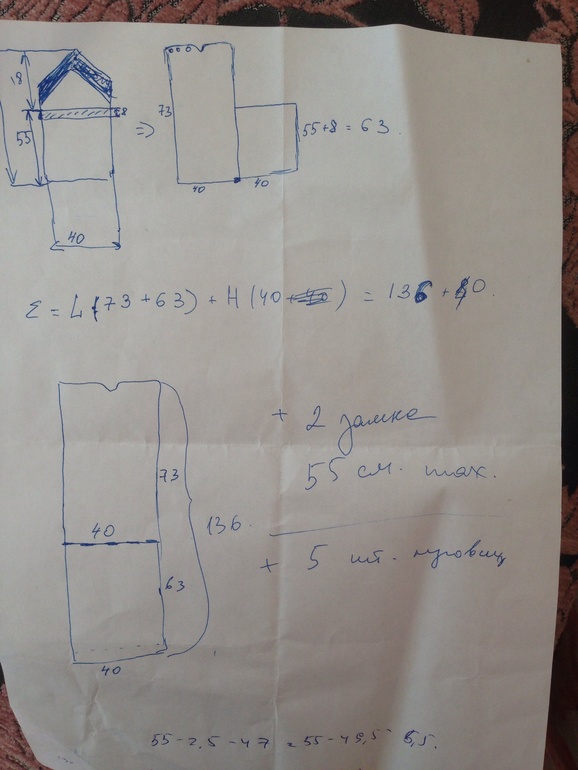 18
8
55
40
=>
73
55+8 = 63
40 40
Σ = L(73 + 63) + H (40) = 136 + 40.
+ 2 замка
55 см. max.
+ 5 шт. пуговиц
73
40
136.
63
40
55 - 2,5 - 47 = 55 - 49,5 5,5.